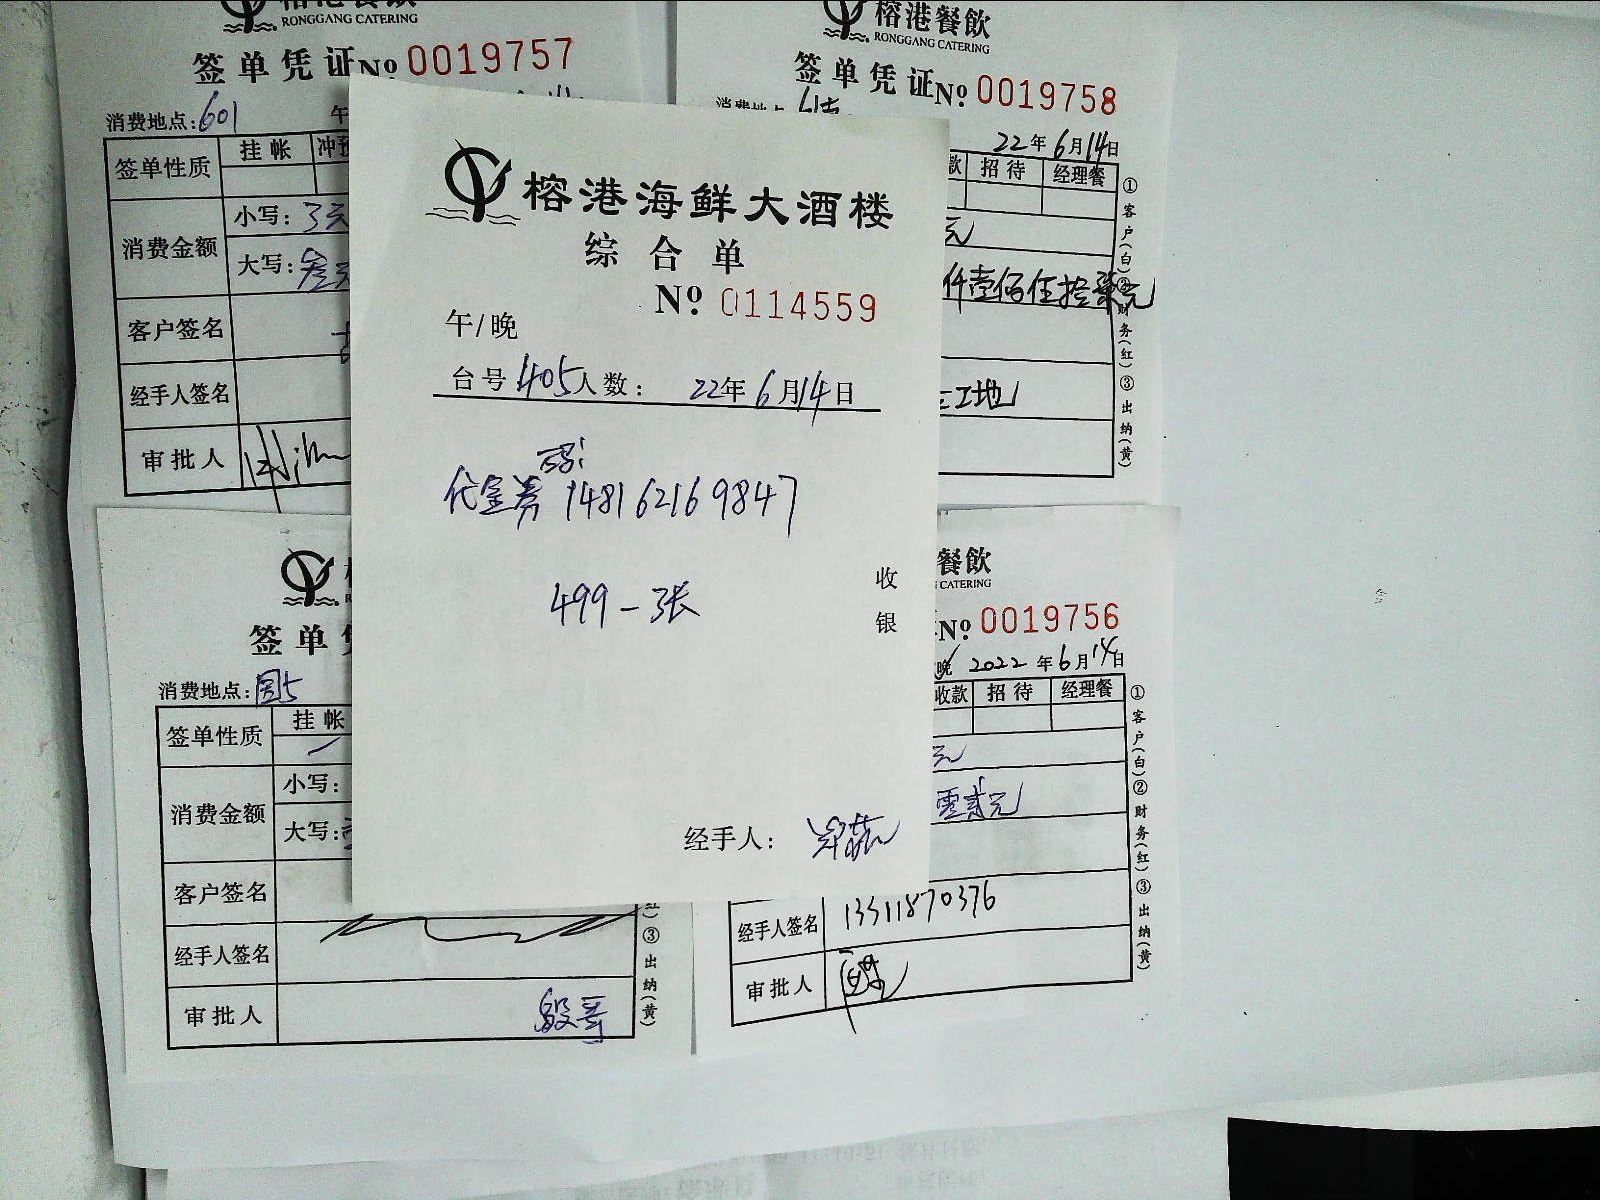 榕港餐飲
RONGGANG CATERING
签单凭证№ 0019757
消费地点:601
午
签单性质
挂帐
小写:3元
消费金额
大写:叁元
客户签名
经手人签名
审批人
榕港餐飲
RONGGANG CATERING
签单凭证№ 0019758
22年6月14日
款
招待
经理餐
元
仟壹佰伍拾柒元
工地
①客户(白)②财务(红)③出纳(黄)
榕港海鲜大酒楼
综合单
№ 0114559
午/晚
台号 405 人数: 22年6月14日
代金券码: 148162169847
499一张
收银
经手人:
签单凭
消费地点:
签单性质
挂帐
小写:
消费金额
大写:
客户签名
经手人签名
审批人
③出纳(黄)
餐飲
CATERING
№ 0019756
晚 2022年6月14日
收款
招待
经理餐
元
零贰元
经手人签名 13511870376
审批人
①客户(白)②财务(红)③出纳(黄)